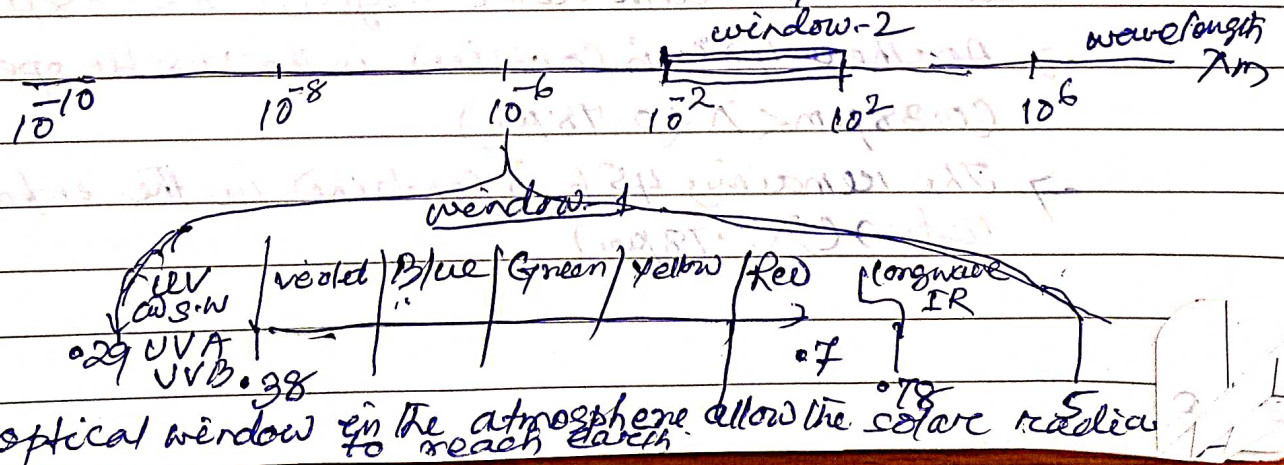 window-2
wavelength
λm
10^-10 10^-8 10^-6 10^-2 10^2 10^6
window-1
UV violet Blue Green Yellow Red longwave
S.W IR
.29 UVA .7
UVB .38 .78 5
optical window in the atmosphere allow the solare radia
to reach earth.